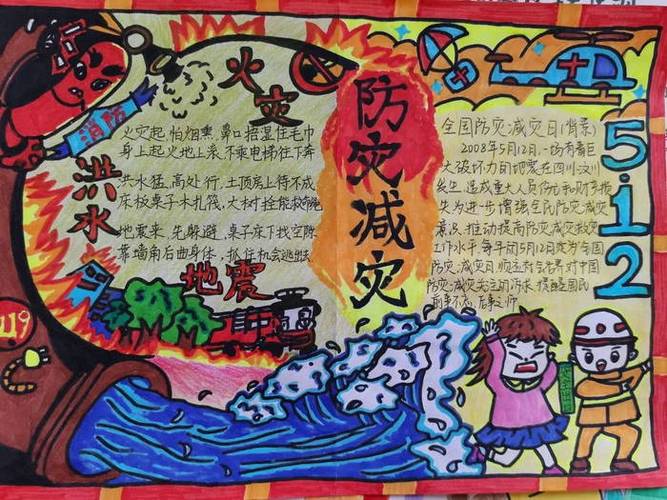 消防
火灾
火灾起 怕烟熏 鼻口捂湿住毛巾
身上起火地上滚 不乘电梯往下奔
洪水
洪水猛 高处行 土顶房上待不成
床板桌子木扎筏 大树拴能救命绳
地震来 先躲避 桌子床下找空隙
靠墙角后曲身体 抓住机会逃出去
地震
119
防灾减灾
全国防灾减灾日(背景)
2008年5月12日 一场有着巨
大破坏力的地震在四川汶川
发生 造成重大人员伤亡和财产损
失为进步增强全民防灾减灾
意识 推动提高防灾减灾救灾
工作水平 每年的5月12日定为全国
防灾减灾日
防灾减灾关注的 提醒国民
前事不忘 后事之师
5.12